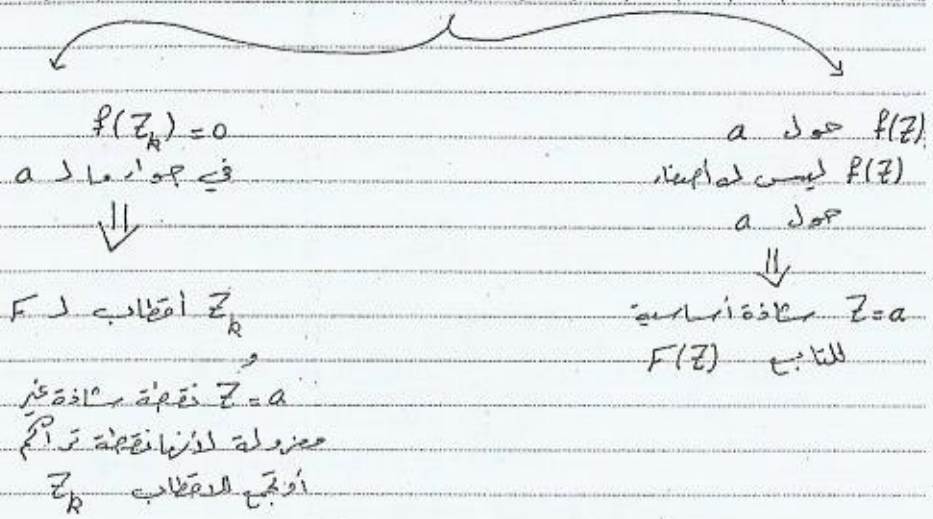 f(Z) حول a
f(Z) ليس له أصفار
حول a
⇓
Z=a شاذة أساسية
للتابع F(Z)
f(Z_k)=0
في جوار ما لـ a
⇓
Z_k أقطاب لـ F
و
Z=a نقطة شاذة غير
معزولة لأنها نقطة تراكم
أو تجمع للاقطاب Z_k